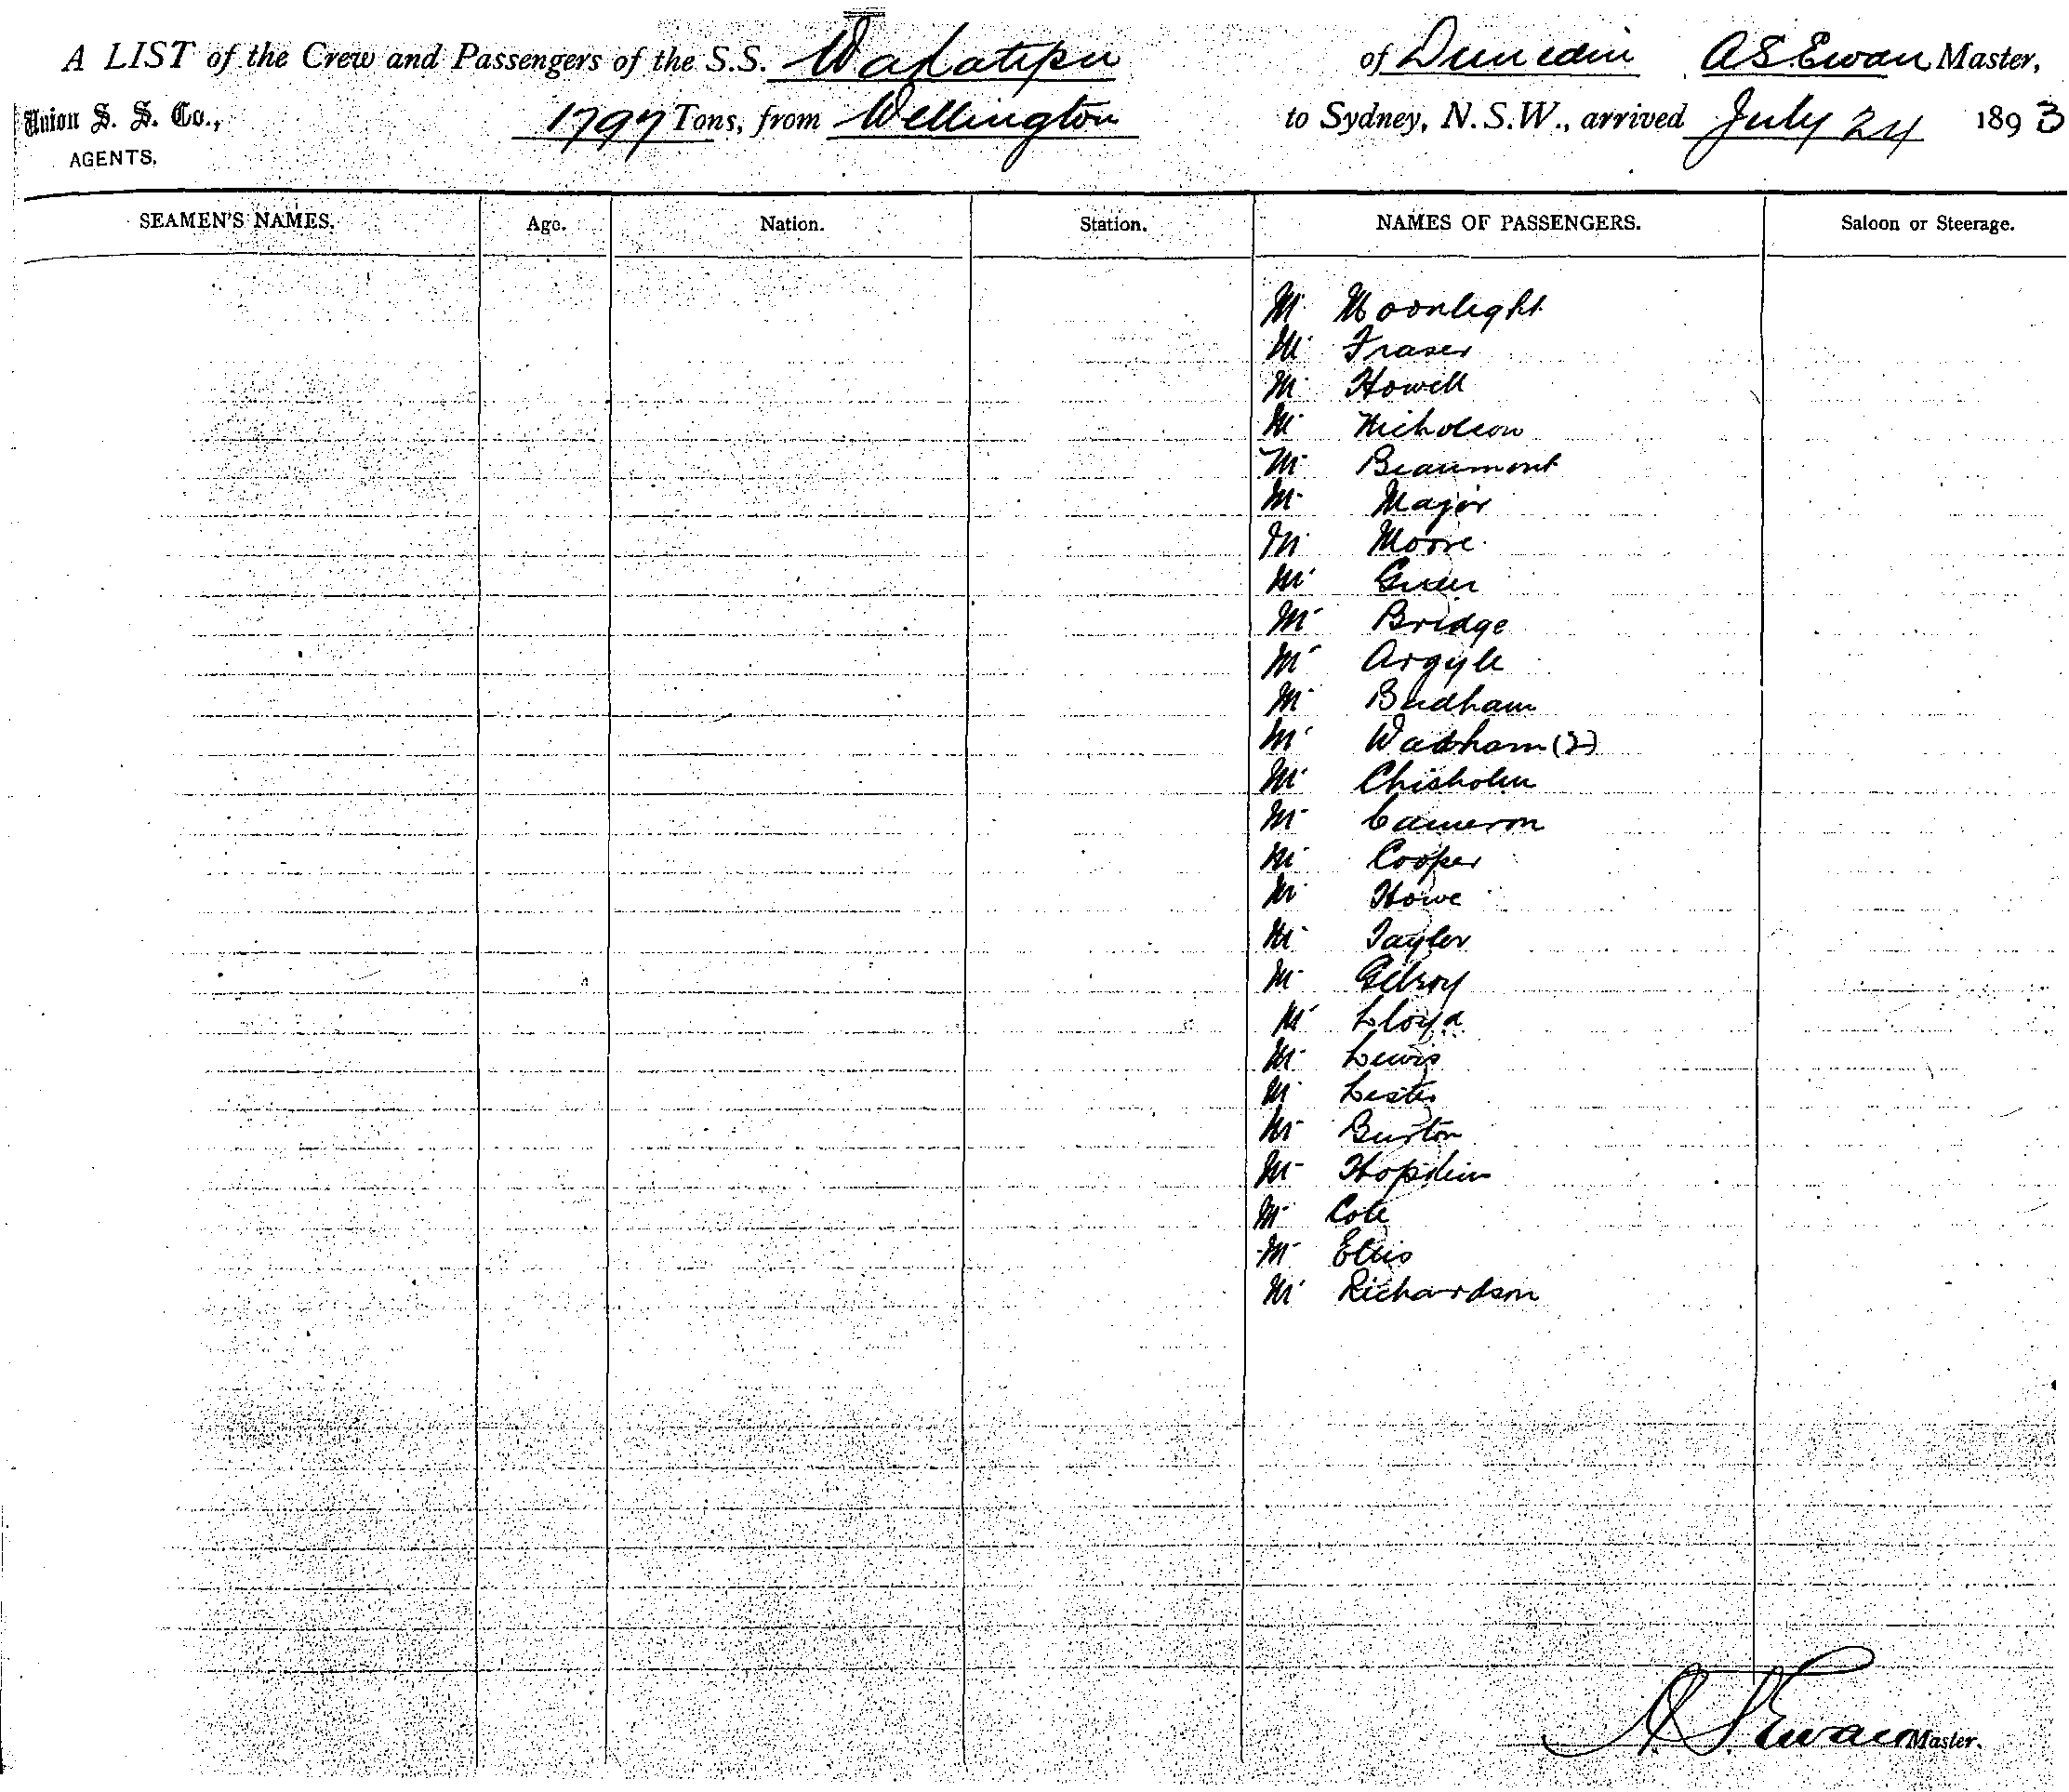 A LIST of the Crew and Passengers of the S.S. Wakatipu of Dunedin A S Ewan Master,
Union S. S. Co., 1797 Tons, from Wellington to Sydney, N.S.W., arrived July 24 1893
AGENTS.
SEAMEN'S NAMES. Age. Nation. Station. NAMES OF PASSENGERS. Saloon or Steerage.
Mr Moonlight
Mr Fraser
Mr Howell
Mr Nicholson
Mr Beaumont
Mr Major
Mr Moore
Mr Green
Mr Bridge
Mr Argyle
Mr
Mr Wadham (2)
Mr Chisholm
Mr Cameron
Mr Cooper
Mr Howe
Mr Taylor
Mr Gilroy
Mr Lloyd
Mr Lewis
Mr Lester
Mr Burton
Mr Hopkins
Mr Cole
Mr Ellis
Mr Richardson
A. S. Ewan Master.